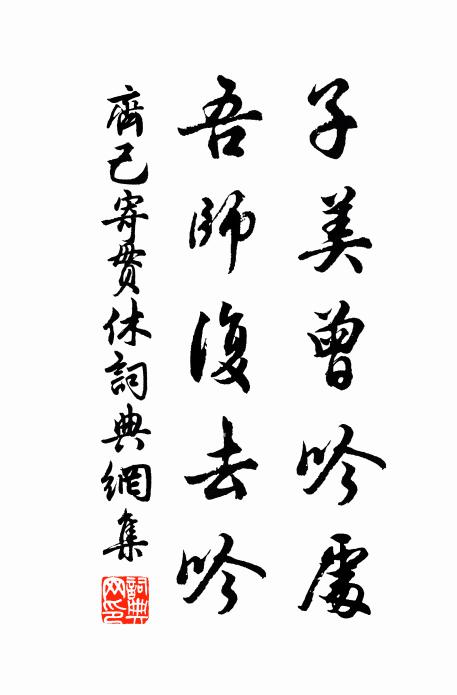 子美曾吟處
吾師復去吟
齊己寄貫休詞典網集
詞典網印